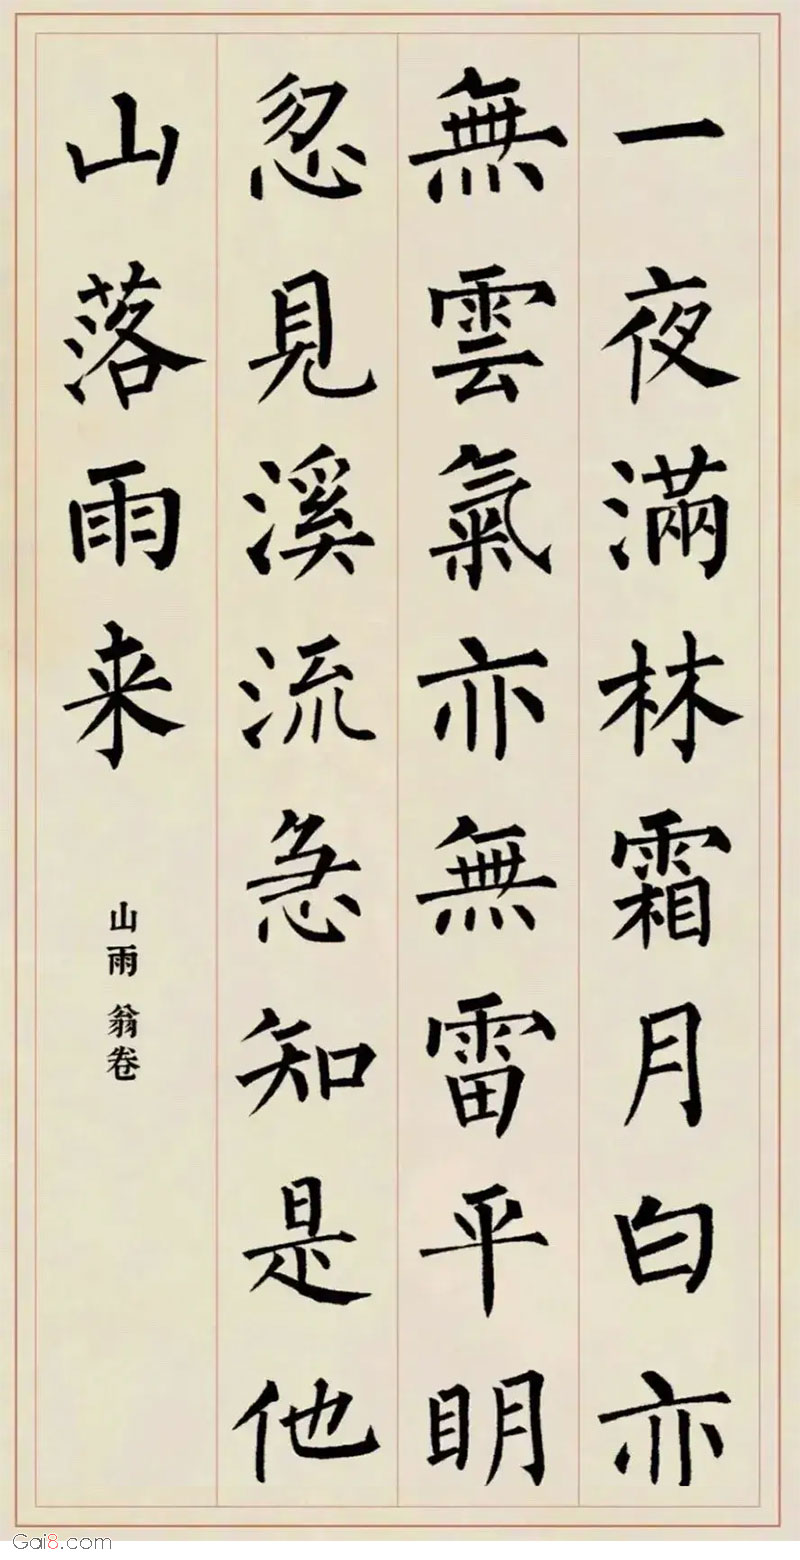 一夜滿林霜月白亦
無雲氣亦無雷平明
忽見溪流急知是他
山落雨来
山雨 翁卷
Gai8.com